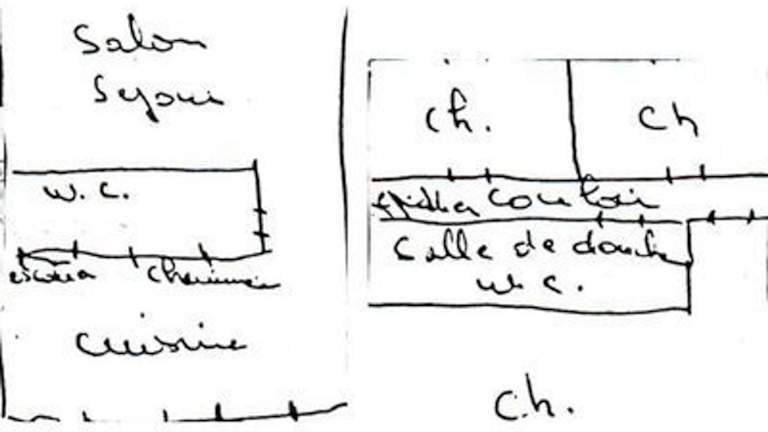 Salon
Sejour
w.c.
cuisine
ch.
ch
couloir
Salle de douche
w.c.
ch.